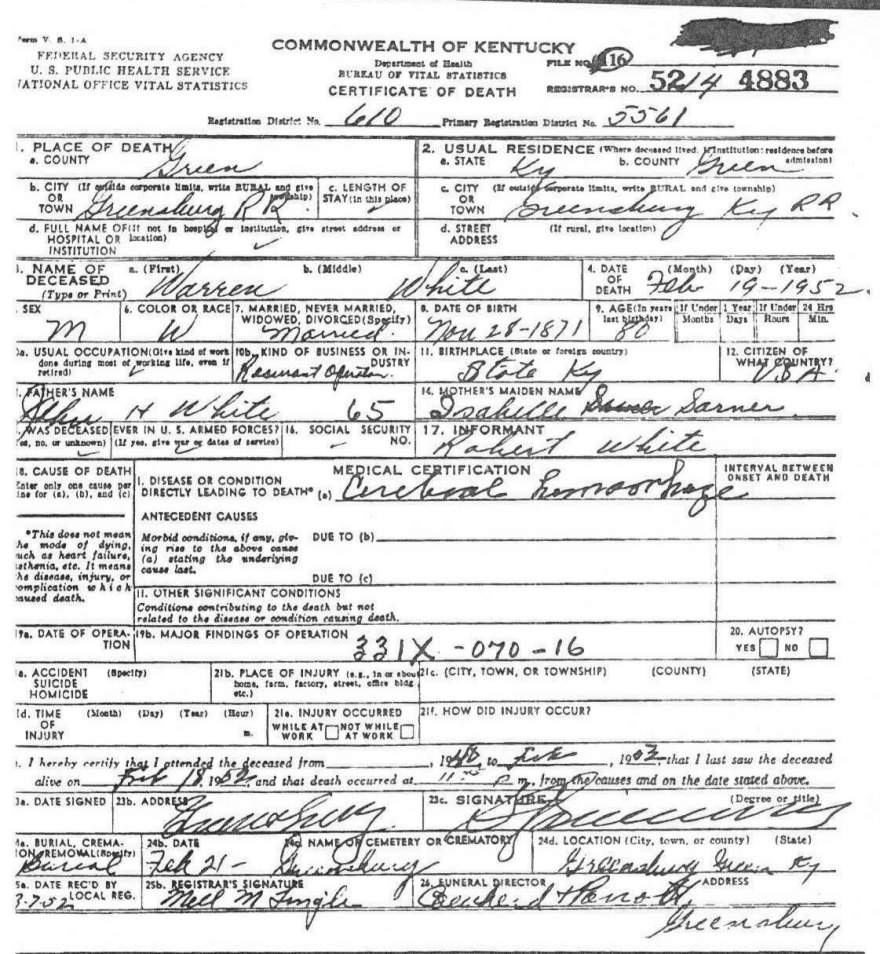 Form V. S. 1-A
FEDERAL SECURITY AGENCY
U. S. PUBLIC HEALTH SERVICE
NATIONAL OFFICE VITAL STATISTICS
COMMONWEALTH OF KENTUCKY
Department of Health
BUREAU OF VITAL STATISTICS
CERTIFICATE OF DEATH
FILE NO. 116
REGISTRAR'S NO. 52 14 4883
Registration District No. 610 Primary Registration District No. 5561
1. PLACE OF DEATH
a. COUNTY Green
2. USUAL RESIDENCE (Where deceased lived. If institution: residence before admission)
a. STATE Ky b. COUNTY Green
b. CITY (If outside corporate limits, write RURAL and give township)
OR
TOWN Greensburg RR
c. LENGTH OF
STAY (in this place)
c. CITY (If outside corporate limits, write RURAL and give township)
OR
TOWN Greensburg Ky RR
d. FULL NAME OF (If not in hospital or institution, give street address or location)
HOSPITAL OR
INSTITUTION
d. STREET (If rural, give location)
ADDRESS
3. NAME OF DECEASED
(Type or Print)
a. (First) Warren b. (Middle) c. (Last) White
4. DATE OF DEATH (Month) (Day) (Year)
Feb 19-1952
SEX
M
6. COLOR OR RACE
W
7. MARRIED, NEVER MARRIED,
WIDOWED, DIVORCED (Specify)
Married
8. DATE OF BIRTH
Nov 28-1871
9. AGE (In years last birthday)
80
If Under 1 Year
Months Days
If Under 24 Hrs
Hours Min.
10a. USUAL OCCUPATION (Give kind of work
done during most of working life, even if
retired)
10b. KIND OF BUSINESS OR INDUSTRY
11. BIRTHPLACE (State or foreign country)
State Ky
12. CITIZEN OF
WHAT COUNTRY?
USA
FATHER'S NAME
H White 65
14. MOTHER'S MAIDEN NAME
Isabelle Sarner
WAS DECEASED EVER IN U. S. ARMED FORCES?
(Yes, no, or unknown) (If yes, give war or dates of service)
16. SOCIAL SECURITY
NO.
17. INFORMANT
Robert White
18. CAUSE OF DEATH
Enter only one cause per
line for (a), (b), and (c)
MEDICAL CERTIFICATION
I. DISEASE OR CONDITION
DIRECTLY LEADING TO DEATH* (a) Cerebral hemorrhage
INTERVAL BETWEEN
ONSET AND DEATH
*This does not mean
the mode of dying,
such as heart failure,
asthenia, etc. It means
the disease, injury, or
complication which
caused death.
ANTECEDENT CAUSES
Morbid conditions, if any, giv-
ing rise to the above cause
(a) stating the underlying
cause last.
DUE TO (b)
DUE TO (c)
II. OTHER SIGNIFICANT CONDITIONS
Conditions contributing to the death but not
related to the disease or condition causing death.
19a. DATE OF OPERA-
TION
19b. MAJOR FINDINGS OF OPERATION
331X -070 -16
20. AUTOPSY?
YES NO
ACCIDENT (Specify)
SUICIDE
HOMICIDE
21b. PLACE OF INJURY (e.g., in or about
home, farm, factory, street, office bldg.
etc.)
21c. (CITY, TOWN, OR TOWNSHIP) (COUNTY) (STATE)
21d. TIME (Month) (Day) (Year) (Hour)
OF
INJURY m.
21e. INJURY OCCURRED
WHILE AT WORK NOT WHILE AT WORK
21f. HOW DID INJURY OCCUR?
I hereby certify that I attended the deceased from , 1948, to Feb , 1952, that I last saw the deceased
alive on Feb 18, 1952, and that death occurred at 11 P m., from the causes and on the date stated above.
23a. DATE SIGNED
23b. ADDRESS
Greensburg
23c. SIGNATURE (Degree or title)
24a. BURIAL, CREMA-
TION, REMOVAL (Specify)
Burial
24b. DATE
Feb 21-
24c. NAME OF CEMETERY OR CREMATORY
Greensburg
24d. LOCATION (City, town, or county) (State)
Greensburg Green Ky
25a. DATE REC'D BY
LOCAL REG.
3-7-52
25b. REGISTRAR'S SIGNATURE
Mell M Tingle
26. FUNERAL DIRECTOR ADDRESS
Greensburg